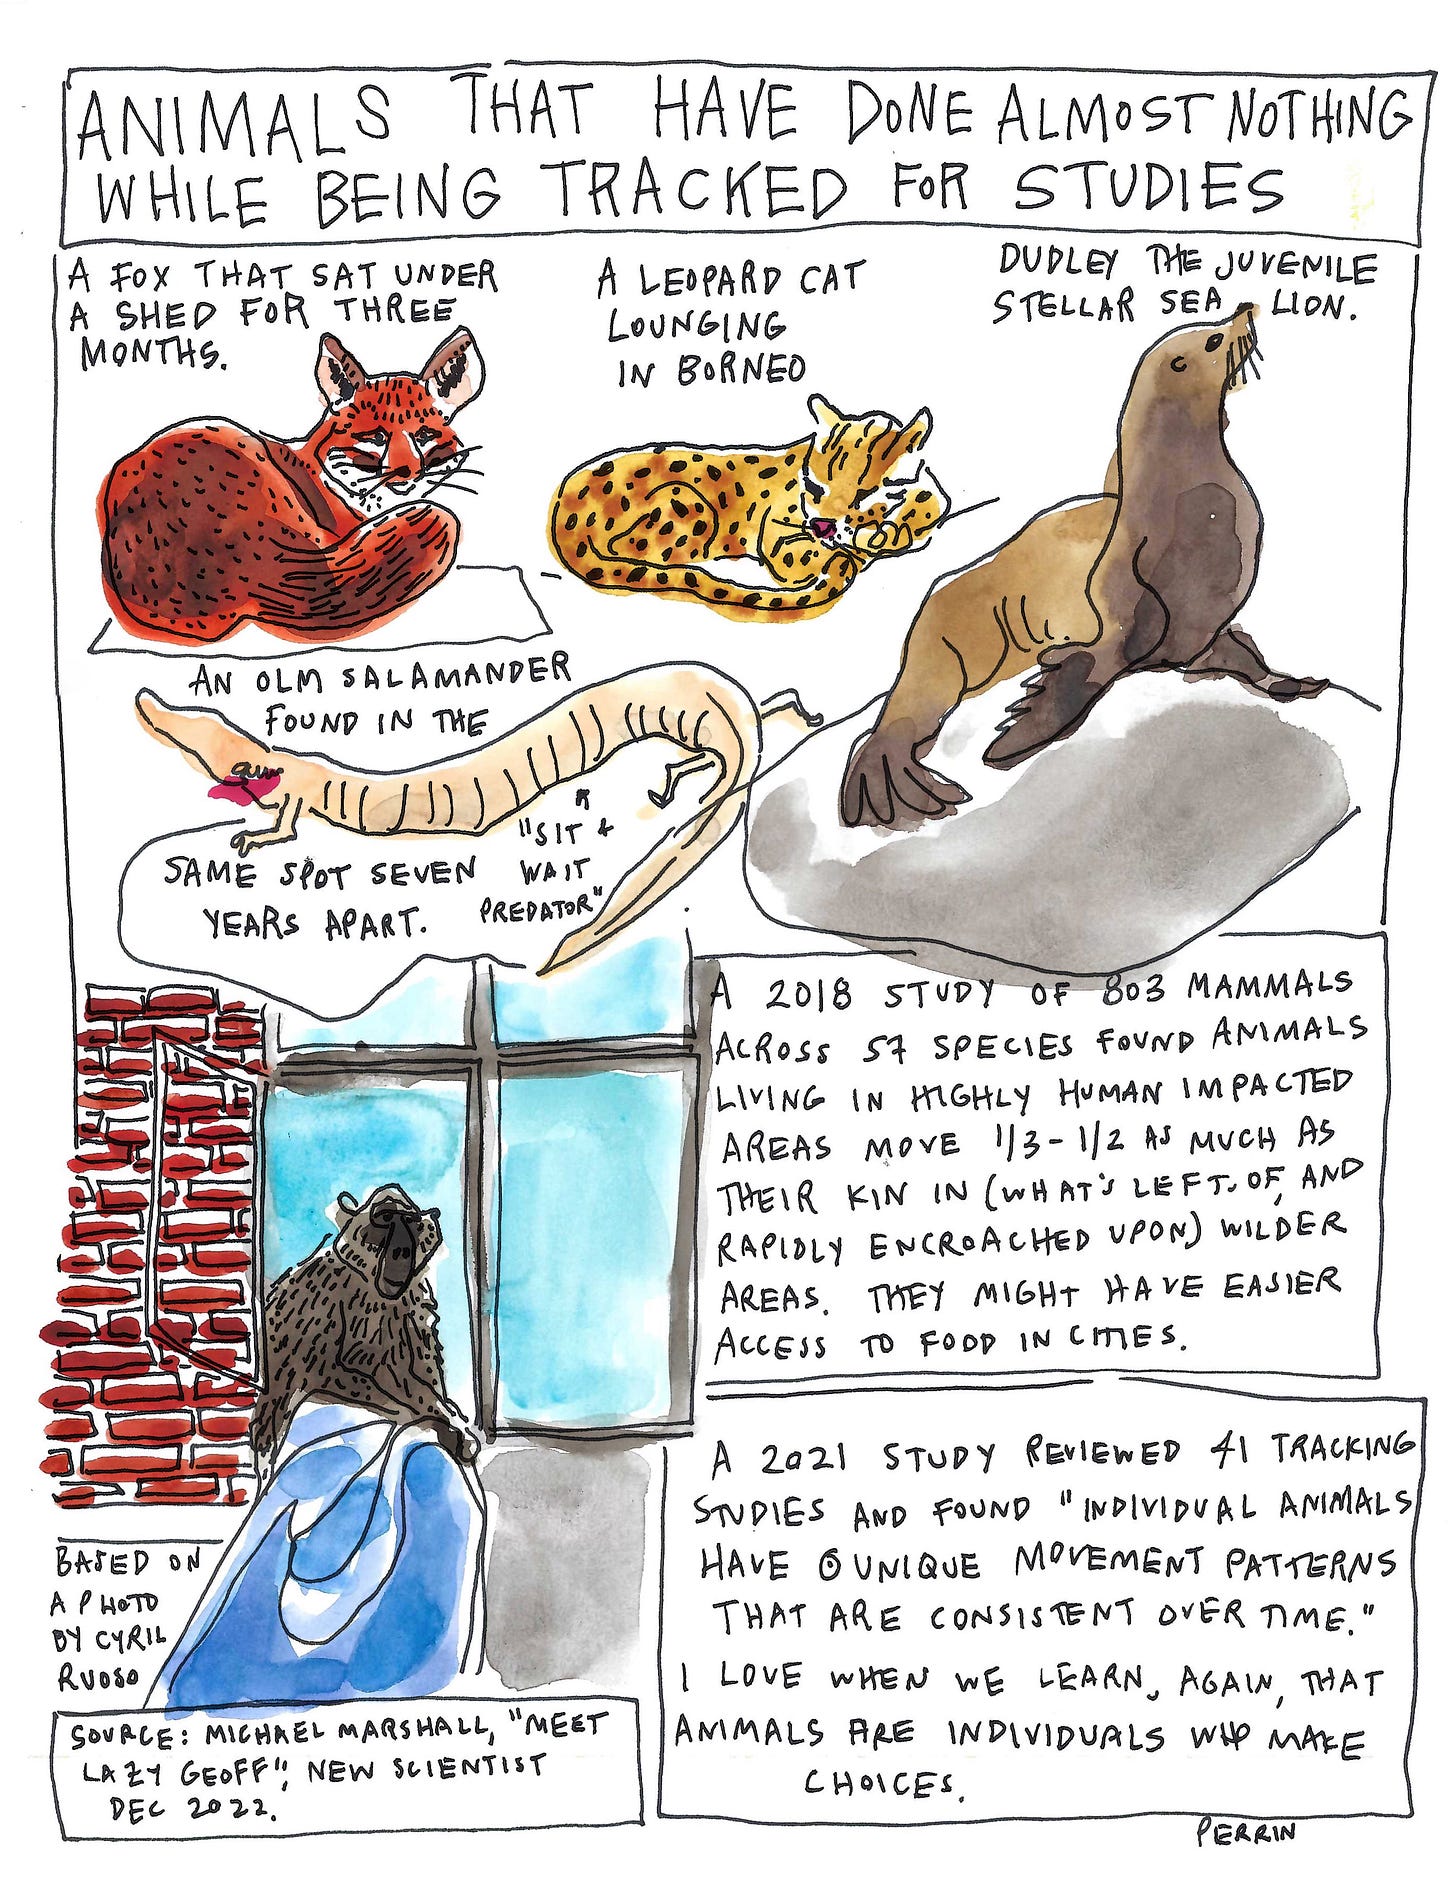 ANIMALS THAT HAVE DONE ALMOST NOTHING
WHILE BEING TRACKED FOR STUDIES
A FOX THAT SAT UNDER
A SHED FOR THREE
MONTHS.
A LEOPARD CAT
LOUNGING
IN BORNEO
DUDLEY THE JUVENILE
STELLAR SEA LION.
AN OLM SALAMANDER
FOUND IN THE
SAME SPOT SEVEN
YEARS APART.
"SIT &
WAIT
PREDATOR"
A 2018 STUDY OF 803 MAMMALS
ACROSS 57 SPECIES FOUND ANIMALS
LIVING IN HIGHLY HUMAN IMPACTED
AREAS MOVE 1/3-1/2 AS MUCH AS
THEIR KIN IN (WHAT'S LEFT OF, AND
RAPIDLY ENCROACHED UPON) WILDER
AREAS. THEY MIGHT HAVE EASIER
ACCESS TO FOOD IN CITIES.
A 2021 STUDY REVIEWED 41 TRACKING
STUDIES AND FOUND "INDIVIDUAL ANIMALS
HAVE UNIQUE MOVEMENT PATTERNS
THAT ARE CONSISTENT OVER TIME."
I LOVE WHEN WE LEARN, AGAIN, THAT
ANIMALS ARE INDIVIDUALS WHO MAKE
CHOICES.
BASED ON
A PHOTO
BY CYRIL
RUOSO
SOURCE: MICHAEL MARSHALL, "MEET
LAZY GEOFF", NEW SCIENTIST
DEC 2022.
PERRIN